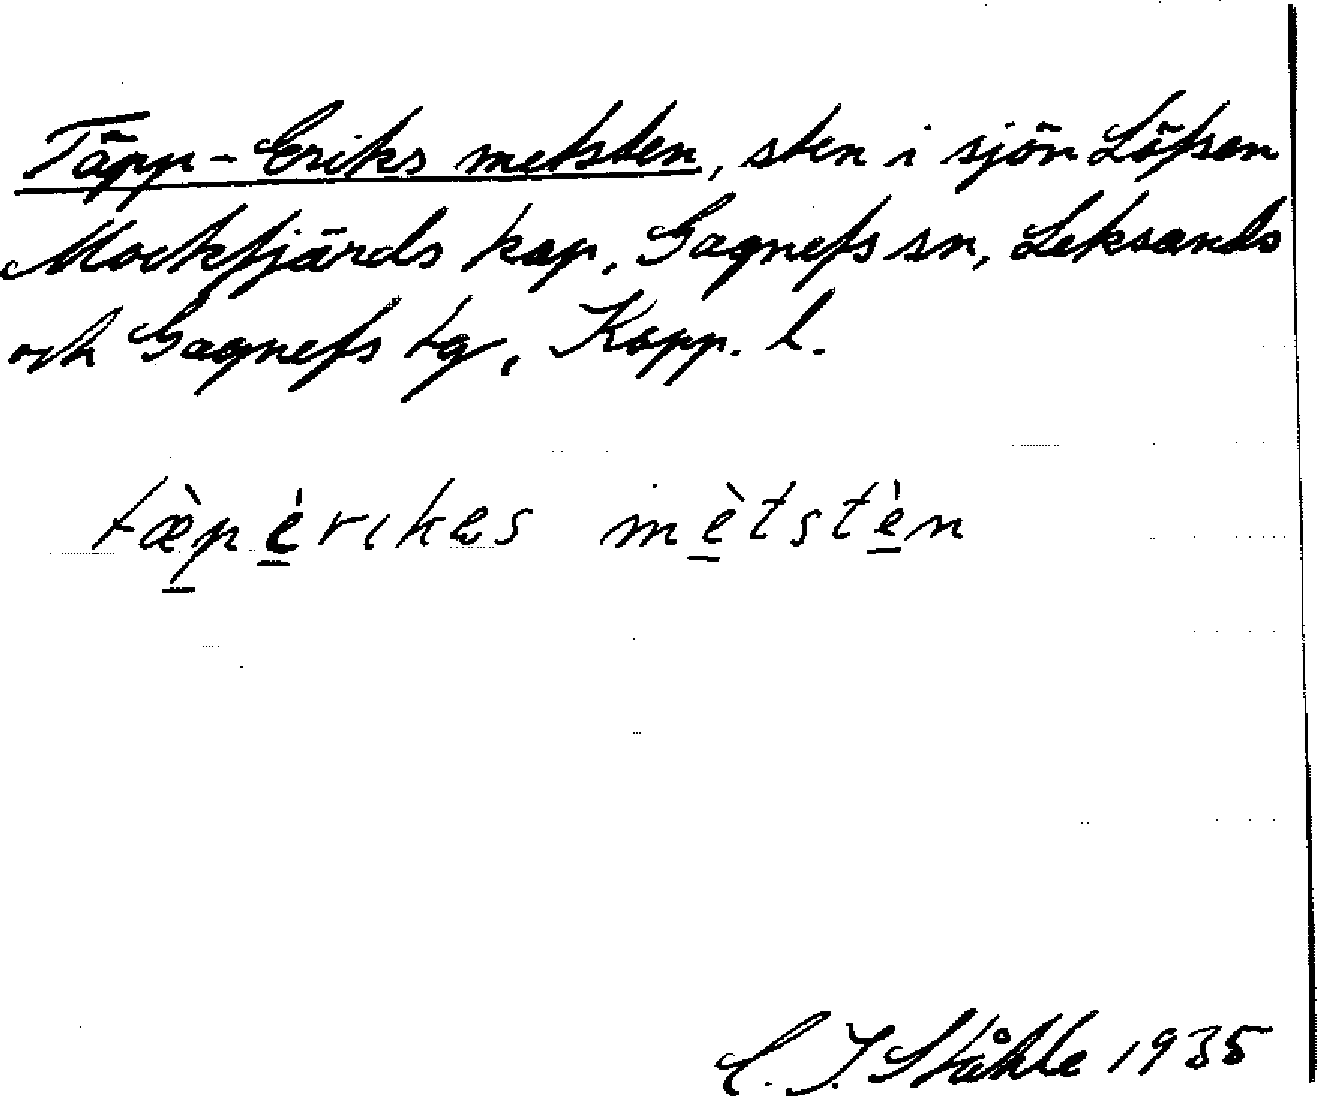 Täpp-Eriks metsten, sten i sjön Löfsen
Mockfjärds kap, Gagnefs sn, Leksands
och Gagnefs tg, Kopp. l.
tæ̀pèrikes mètstèn
C. I. Ståhle 1935